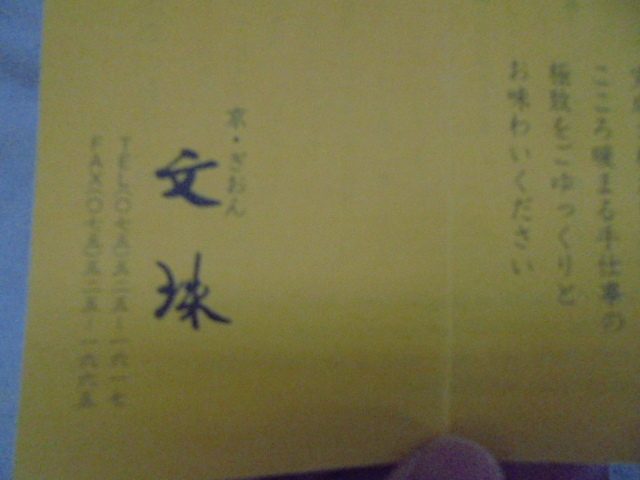 こころ暖まる手仕事の
極致をごゆっくりと
お味わいください
京・ぎおん
文珠
TEL〇七五・五二五-一六一七
FAX〇七五・五二五-一六六五